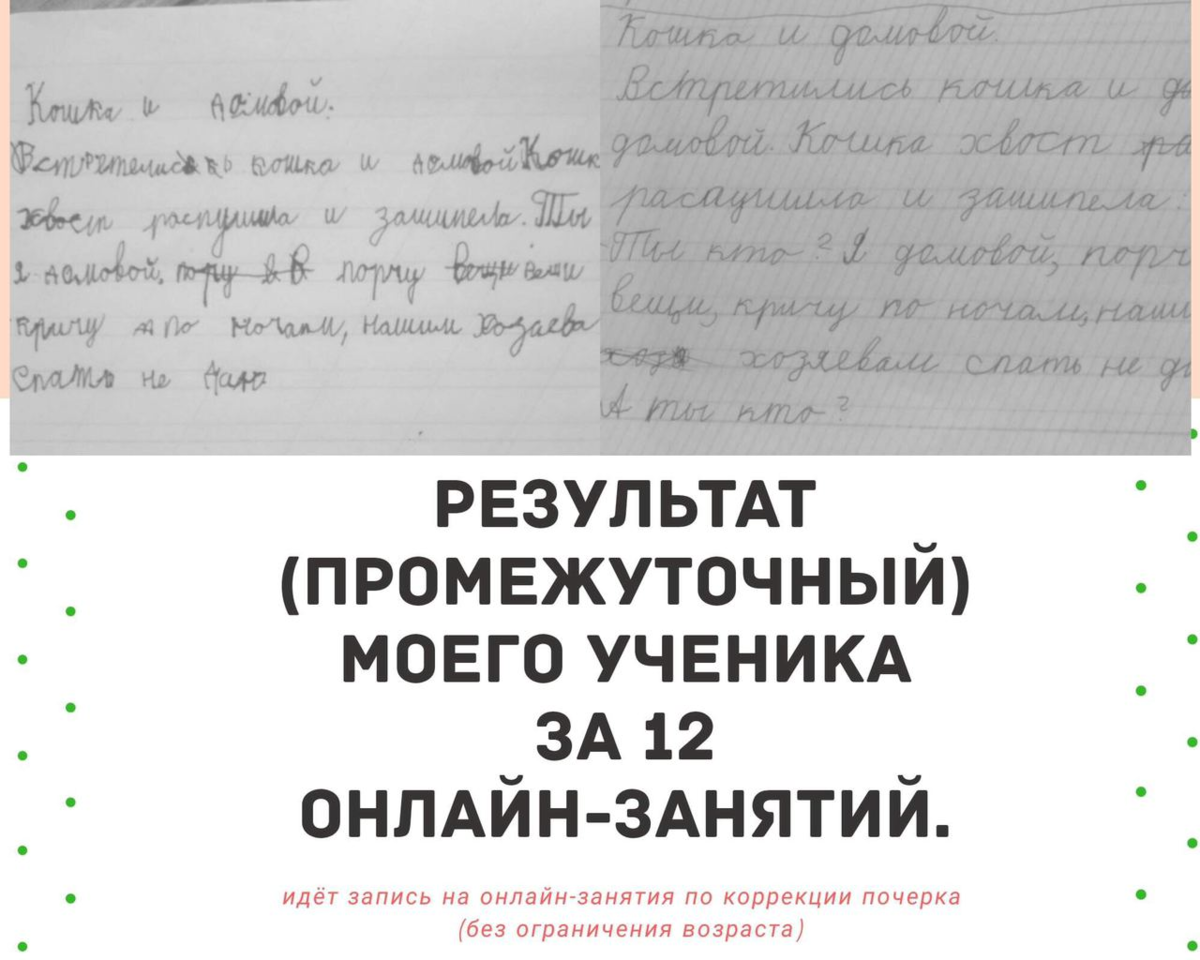 Кошка и домовой.
Встретелись кошка и домовой Кошк
хвост распушила и зашипела. Ты
Я домовой, порчу вещи
кричу по ночам, нашим хозаева
спать не даю
Кошка и домовой.
Встретились кошка и до
домовой. Кошка хвост ра
распушила и зашипела:
Ты кто? Я домовой, порч
вещи, кричу по ночам, наши
хозяевам спать не д
А ты кто?
РЕЗУЛЬТАТ
(ПРОМЕЖУТОЧНЫЙ)
МОЕГО УЧЕНИКА
ЗА 12
ОНЛАЙН-ЗАНЯТИЙ.
идёт запись на онлайн-занятия по коррекции почерка
(без ограничения возраста)